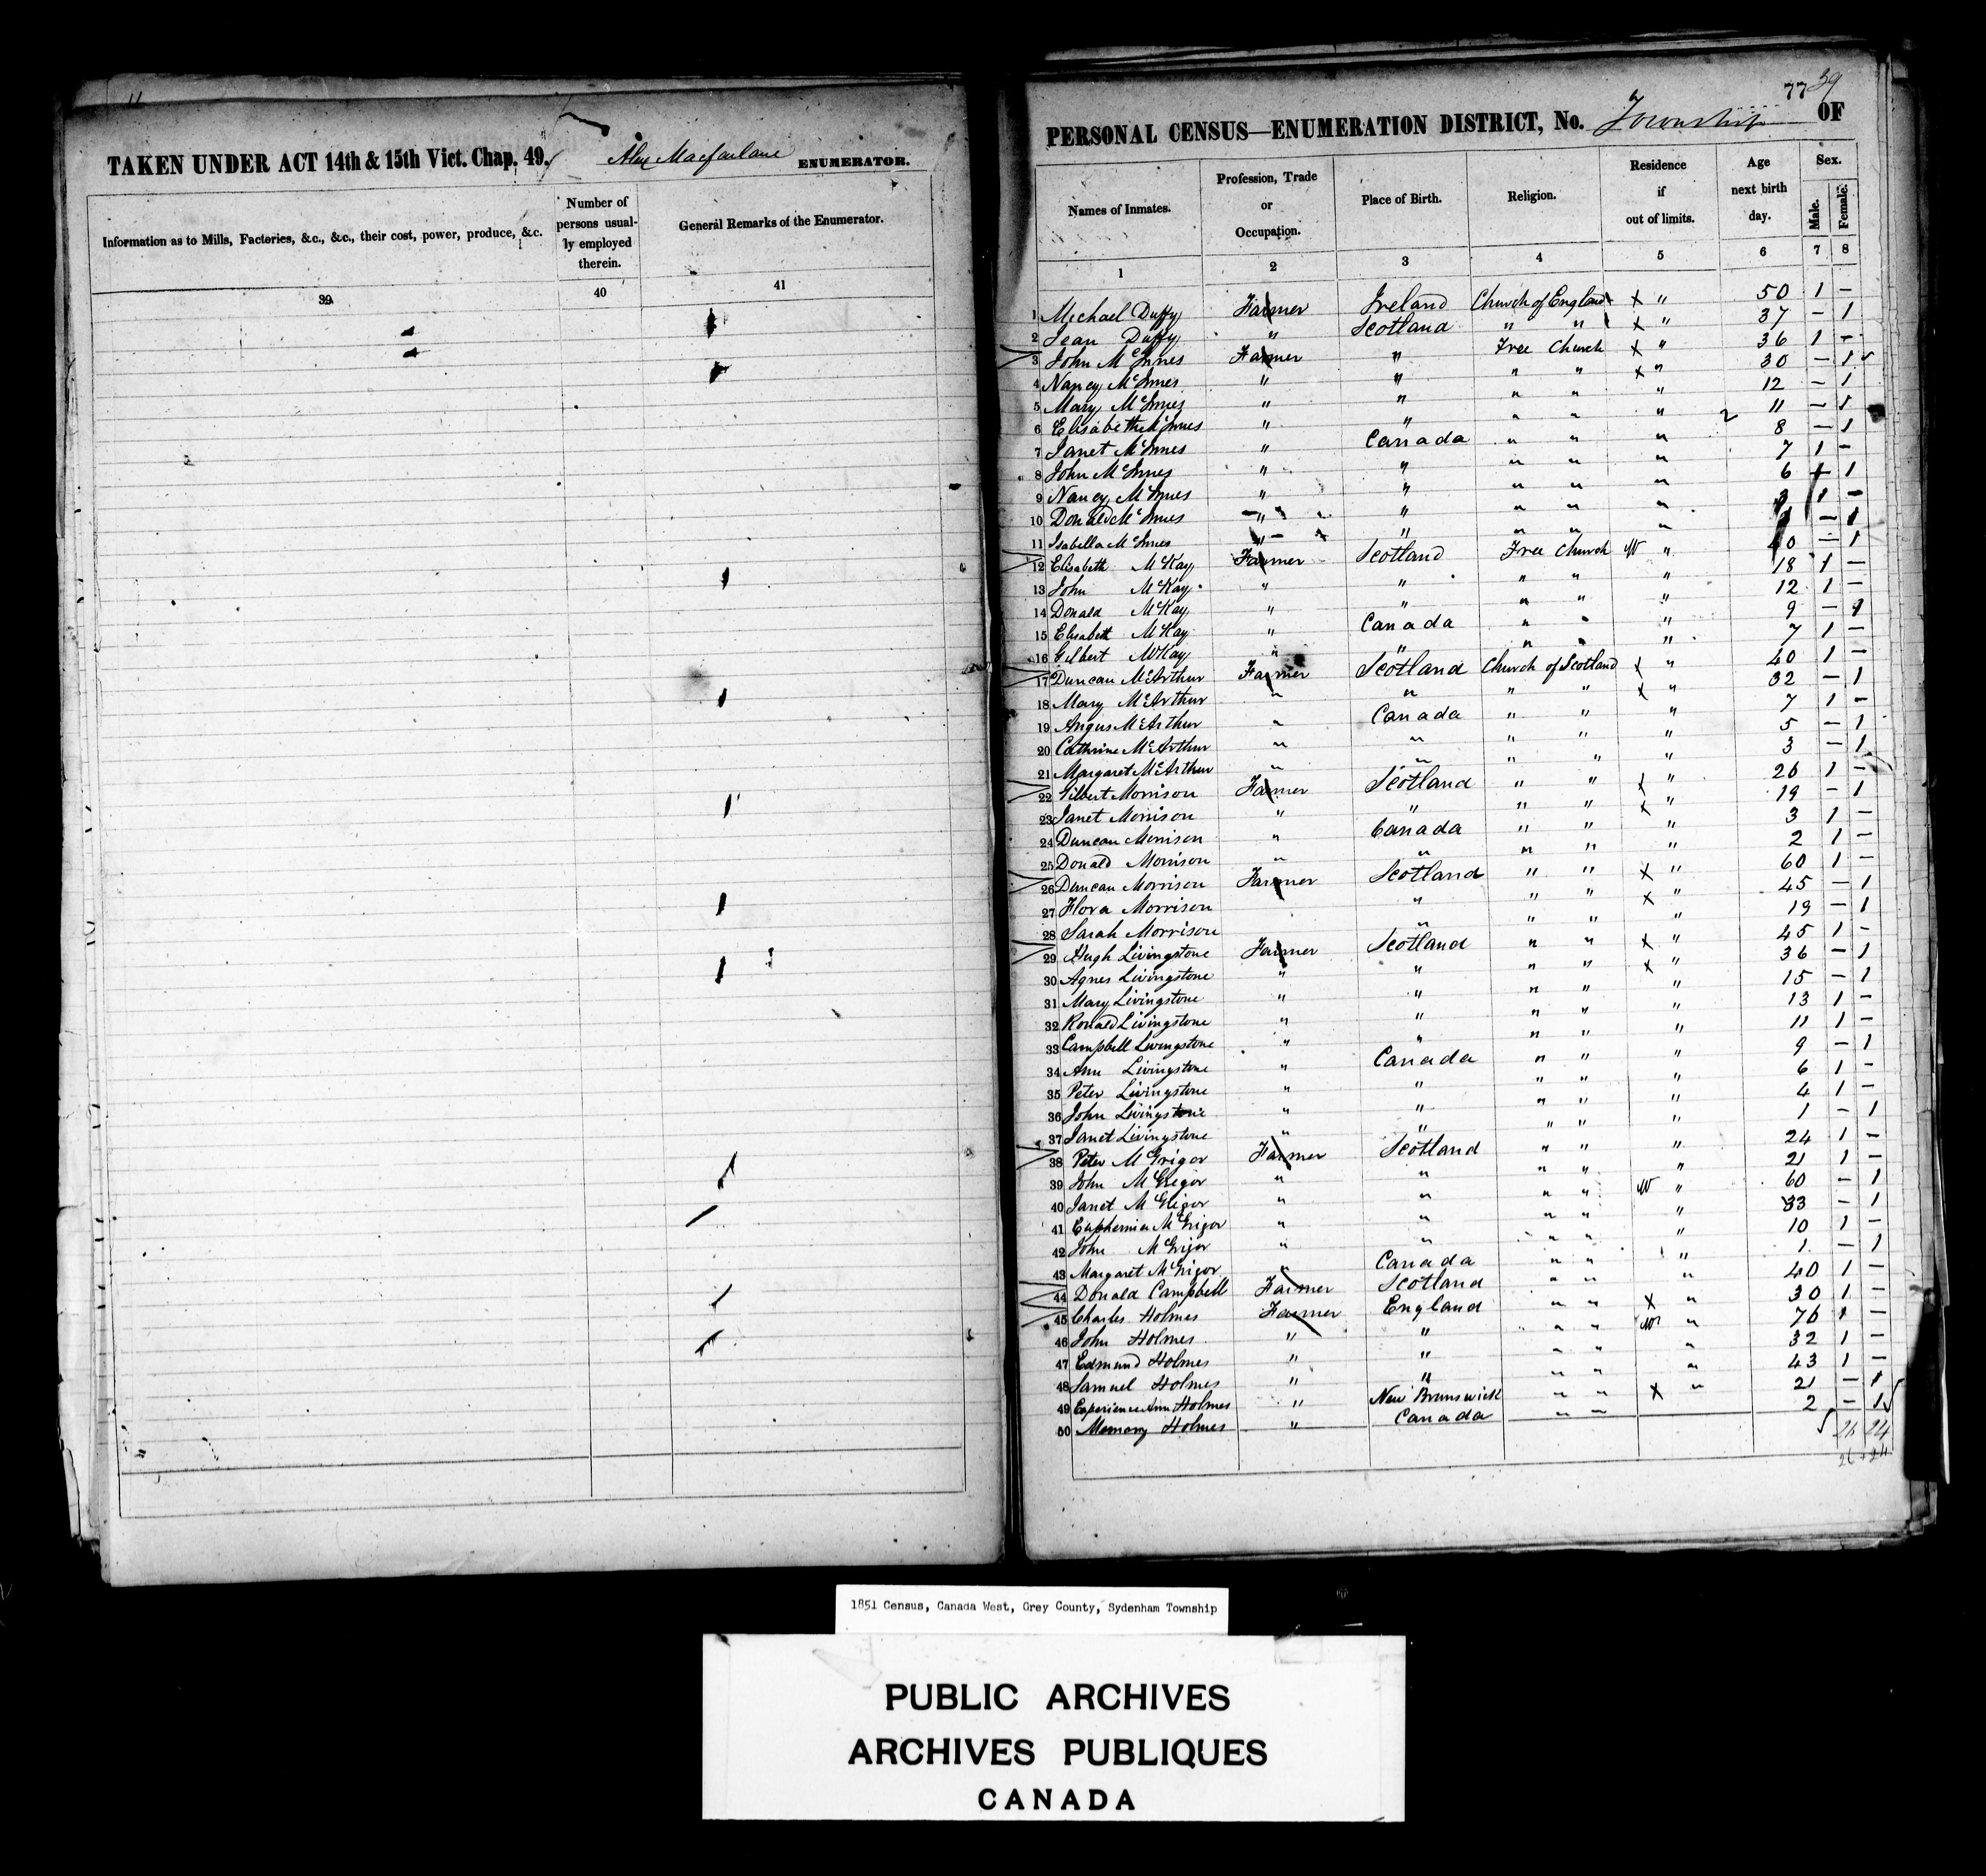 TAKEN UNDER ACT 14th & 15th Vict. Chap. 49. Alex Macfarlane ENUMERATOR.
Information as to Mills, Factories, &c., &c., their cost, power, produce, &c.
Number of persons usually employed therein.
General Remarks of the Enumerator.
39 40 41
77 39
PERSONAL CENSUS—ENUMERATION DISTRICT, No. Township OF
Names of Inmates.
Profession, Trade or Occupation.
Place of Birth.
Religion.
Residence if out of limits.
Age next birth day.
Sex.
Male. Female.
1 2 3 4 5 6 7 8
1 Michael Duffy Farmer Ireland Church of England x " 50 1 –
2 Jean Duffy " Scotland " " x " 37 – 1
3 John McInnes Farmer " Free Church x " 36 1 –
4 Nancy McInnes " " " " x " 30 – 1
5 Mary McInnes " " " " " 12 – 1
6 Elisabeth McInnes " " " " " 11 – 1
7 Janet McInnes " Canada " " " 8 – 1
8 John McInnes " " " " " 7 1 –
9 Nancy McInnes " " " " " 6 – 1
10 Donald McInnes " " " " " 3 1 –
11 Isabella McInnes " " " " " 1 – 1
12 Elisabeth McKay Farmer Scotland Free Church W " 40 – 1
13 John McKay " " " " " 18 1 –
14 Donald McKay " " " " " 12 1 –
15 Elisabeth McKay " Canada " " " 9 – 1
16 Gilbert McKay " " " " " 7 1 –
17 Duncan McArthur Farmer Scotland Church of Scotland x " 40 1 –
18 Mary McArthur " " " " x " 32 – 1
19 Angus McArthur " Canada " " " 7 1 –
20 Cathrine McArthur " " " " " 5 – 1
21 Margaret McArthur " " " " " 3 – 1
22 Gilbert Morrison Farmer Scotland " " x " 26 1 –
23 Janet Morrison " " " " x " 19 – 1
24 Duncan Morrison " Canada " " " 3 1 –
25 Donald Morrison " " " " " 2 1 –
26 Duncan Morrison Farmer Scotland " " x " 60 1 –
27 Flora Morrison " " " x " 45 – 1
28 Sarah Morrison " " " " 19 – 1
29 Hugh Livingstone Farmer Scotland " " x " 45 1 –
30 Agnes Livingstone " " " " x " 36 – 1
31 Mary Livingstone " " " " " 15 – 1
32 Ronald Livingstone " " " " " 13 1 –
33 Campbell Livingstone " " " " " 11 1 –
34 Ann Livingstone " Canada " " " 9 – 1
35 Peter Livingstone " " " " " 6 1 –
36 John Livingstone " " " " " 4 1 –
37 Janet Livingstone " " " " " 1 – 1
38 Peter McGrigor Farmer Scotland " " " 24 1 –
39 John McGrigor " " " " " 21 1 –
40 Janet McGrigor " " " " W " 60 – 1
41 Euphemia McGrigor " " " " " 33 – 1
42 John McGrigor " " " " " 10 1 –
43 Margaret McGrigor " Canada " " " 1 – 1
44 Donald Campbell Farmer Scotland " " " 40 1 –
45 Charles Holmes Farmer England " " x " 30 1 –
46 John Holmes " " " " W " 76 1 –
47 Edmund Holmes " " " " " 32 1 –
48 Samuel Holmes " " " " " 43 1 –
49 Experience Ann Holmes " New Brunswick " " x " 21 – 1
50 Memory Holmes " Canada " " 2 – 1
26 24
26 + 24
1851 Census, Canada West, Grey County, Sydenham Township
PUBLIC ARCHIVES
ARCHIVES PUBLIQUES
CANADA